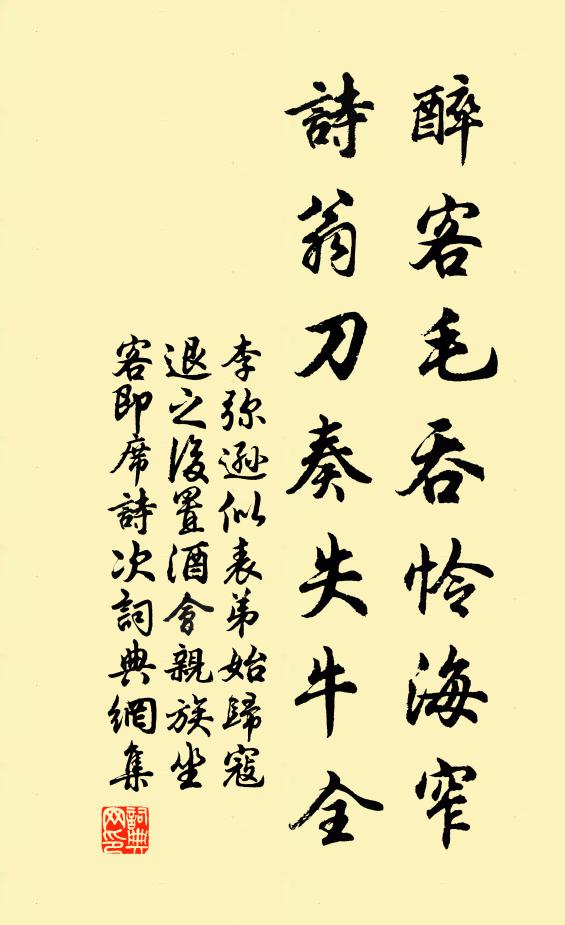 醉客毛吞怜海窄
詩翁刀奏失牛全
李弥遜似表弟始歸寇
退之後置酒會親族坐
客即席詩次詞典網集
詞典
网印